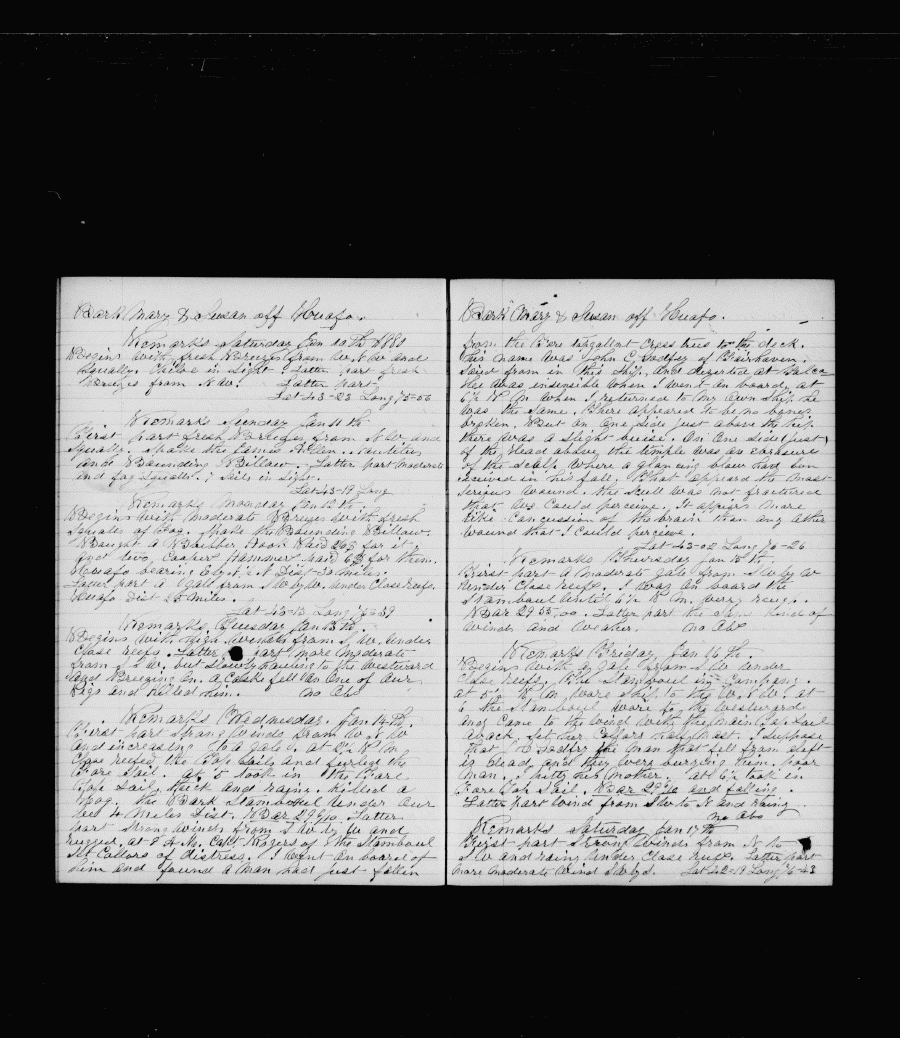 Bark Mary & Susan off Huafo.
Remarks Saturday Jan 10th 1880
Begins with fresh Breezes from W. N W and
Squally. Chiloe in Sight. Latter part fresh
Breezes from N W. Latter part
Lat 43-23 Long 75-56
Remarks Sunday Jan 11th
First part fresh Breezes from N W and
Squally. Spoke the James Allen. Nautilus
and Bounding Billow. Latter part moderate
and fog Squalls. Sails in Sight.
Lat 43-19 Long
Remarks Monday Jan 12th
Begins with moderate Breezes with fresh
Squalls of Fog. Spoke the Bounding Billow.
Bought a Blubber Hook Paid for it.
and two Cooper Hammers Paid for them.
Huafo bearing Dist 20 miles.
Latter part a Gale from under Close reefs.
Huafo Dist 25 miles.
Lat 43-13 Long
Remarks Tuesday Jan 13th
Begins with high winds from S W. under
Close reefs. Latter part more moderate
from S S W. but Slowly hauling to the Westward
and Breezing On. a Caske fell On One of Our
Pigs and Killed him. no Obs
Remarks Wednesday. Jan 14th.
First part Strong winds from W. N W
and increasing to a gale. at P M
Close reefed the Top Sails and furled the
Fore Sail. at 5 took in the Fore
Top Sail, thick and rainy. Killed a
Hog. the Bark Stamboul Under Our
Lee 4 Miles Dist. Bar Latter
part Strong winds from S W by W and
rugged, at 8 A M. Capt Rogers of the Stamboul
Set Collors of distress. I went On board of
him and found a man had just fallen
Bark Mary & Susan off Huafo.
from the Fore topgallant Cross trees to the deck.
his name was John C. Godfry of Fairhaven.
Saied from in this Ship, and desertted at
He was insensible When I went On board, at
6½ P M When I returned to my Own Ship he
was the Same. There appeared to be no bones
broken. But on One Side just above the hip
there was a Slight bruise. On One Side just
of the Head above the temple was an
of the Scalp Where a glancing blow had ben
received in his fall, That appeard the most
Serious wound. the Scull was not fractured
that We Could perceive. It appears more
like Concussion of the brain than any Other
wound that I Could perceive.
Lat 43-02 Long 76-26
Remarks Thursday Jan 15th.
First part a Moderate Gale from S W by W
Under Close reefs. I was on board the
Stamboul Until 6½ P M. very
Bar 29 55,00. Latter part the Same Kind of
winds and weaher. no Obs
Remarks Friday. Jan 16th.
Begins with a Gale from S W Under
Close reefs, the Stamboul in Company.
at 5½ P M. wore Ship to the W. N W. at
6 the Stamboul wore to the westward
and Came to the wind with the Main Top Sail
aback, Set her Collors half Mast. I Suppose
that J C Godfry the man that fell from aloft
is Dead, and they were burying him. poor
man. I pitty his Mother. at 6½ took in
Fore Top Sail. Bar and falling.
Latter part wind from S W to N and rainy.
no Obs
Remarks Saturday Jan 17th
First part Strong winds from N to
S W and rainy Under Close reefs. Latter part
more moderate Wind Lat 42-19 Long 76-43